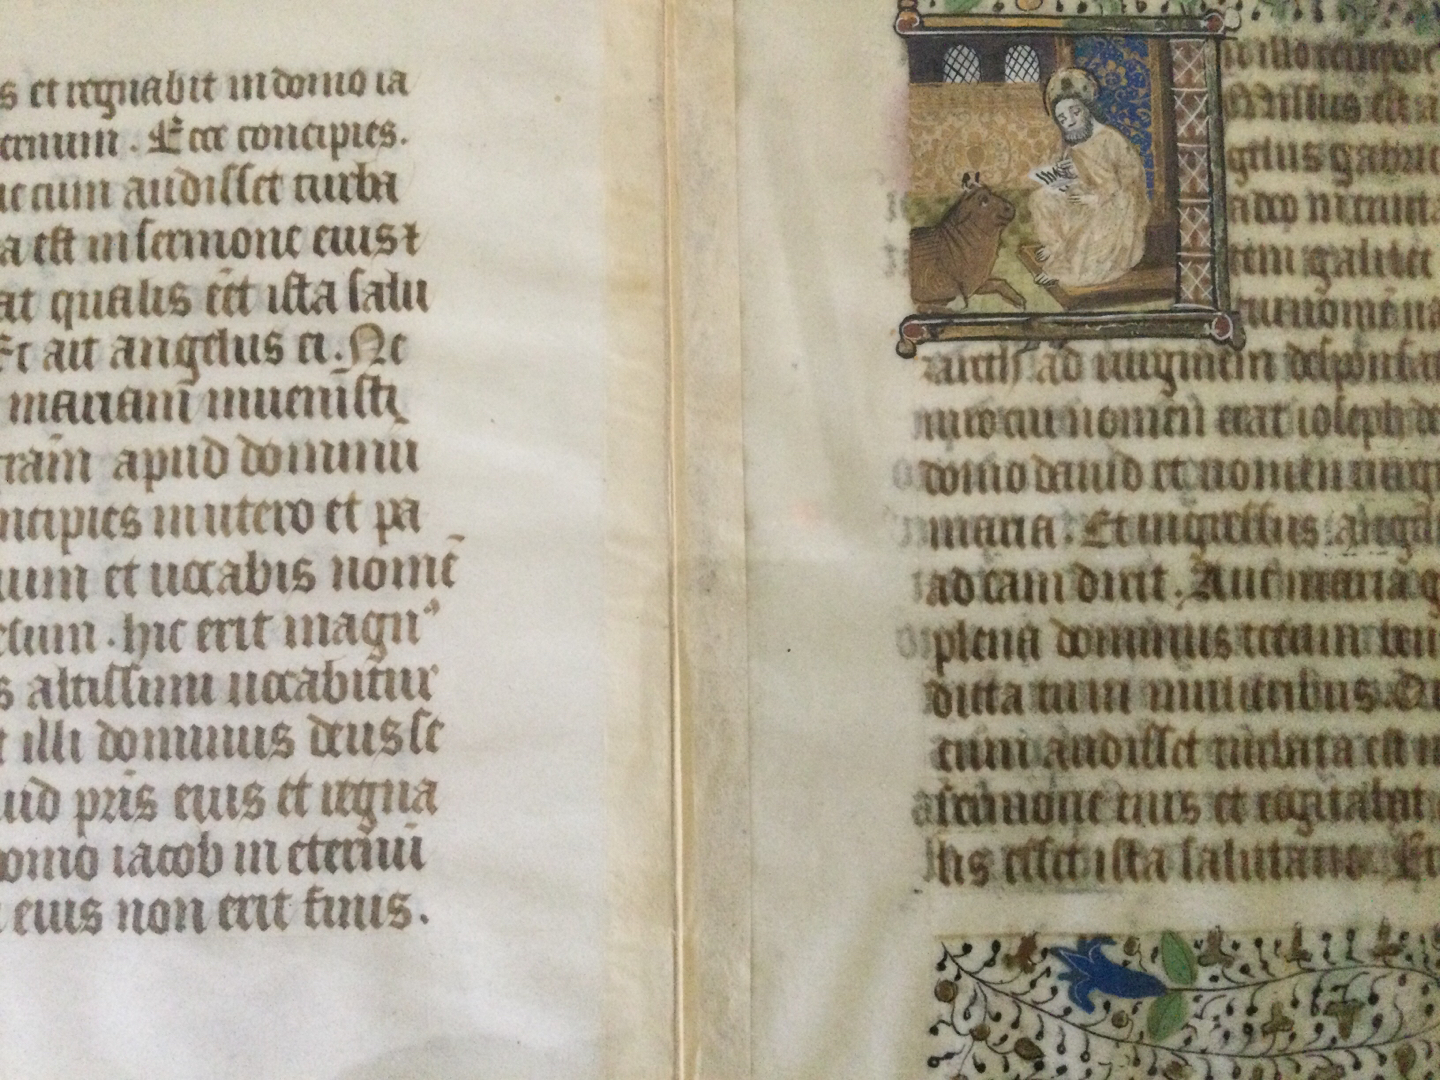 s et regnabit in domo ia
ternum. Ecce concipies.
e cum audisset turba
a est in sermone eius ⁊
at qualis eēt ista salu
Et ait angelus ei. Ne
mariam̄ inuenisti
ciam̄ apud dominū
ncipies in utero et pa
lium et uocabis nomē
esum. hic erit magnꝰ
s altissimi uocabitur
t illi dominus deus se
uid pr̄is eius et regna
omo iacob in eternū
i eius non erit finis.
illo tempore
Missus est a
gelus gabrie
a deo in ciuit
tem galilee
cui nomē na
areth ad uirginem desponsat
uiro cui nomen erat ioseph de
domo dauid et nomen uirg
maria. Et ingressus angel
ad eam dixit. Aue maria g
plena dominus tecum ben
dicta tu in mulieribus. Qu
cum audisset turbata est in
sermone eius et cogitabat
lis esset ista salutatio. Et